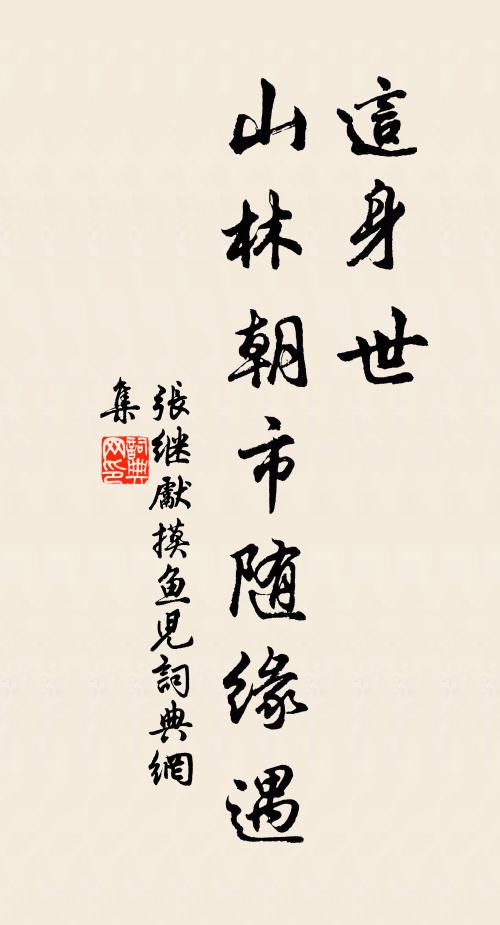 這身世
山林朝市随緣遇
張继獻摸鱼児詞典網
集
詞典网印